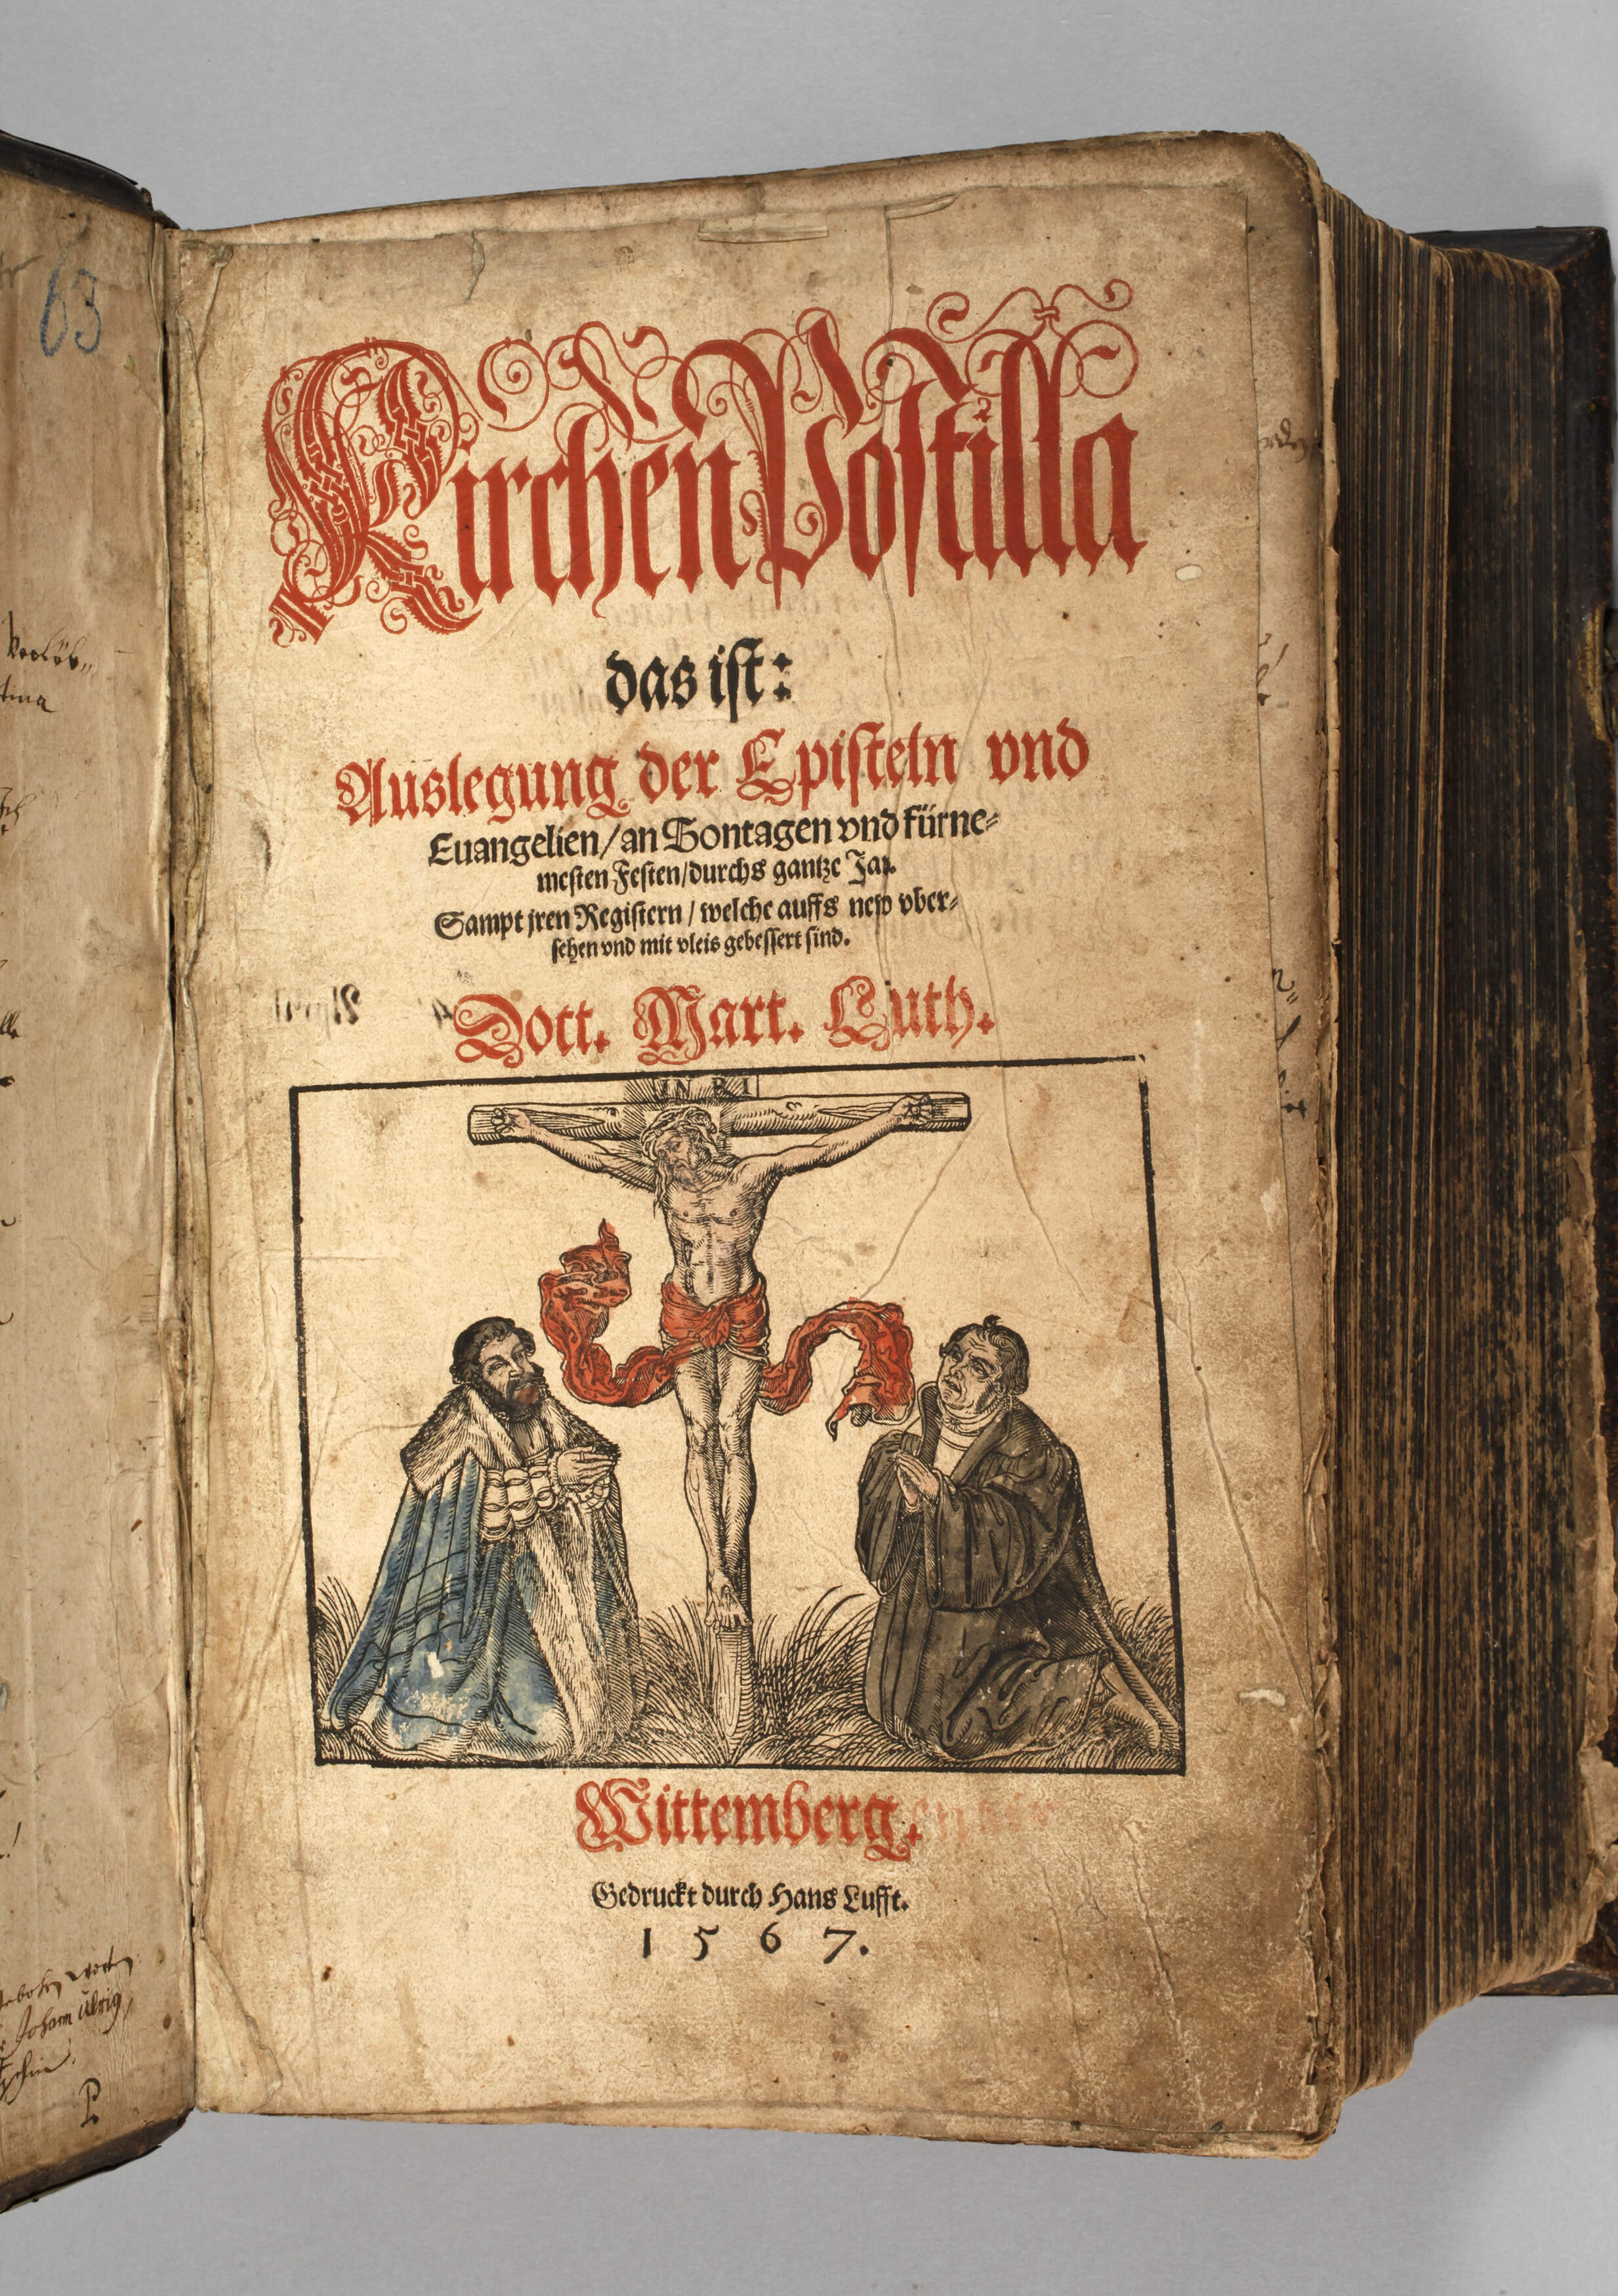 63
Kirchen Postilla
das ist:
Auslegung der Episteln vnd
Euangelien/an Sontagen vnd fürne-
mesten Festen/durchs gantze Jar.
Sampt jren Registern/welche auffs new vber-
sehen vnd mit vleis gebessert sind.
Doct. Mart. Luth.
INRI
Wittemberg.
Gedruckt durch Hans Lufft.
1567.
Johann Ulrig